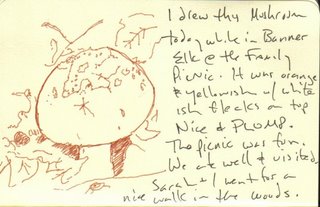 I drew thy Mushroom
today while in Banner
Elk @ the Family
Picnic. It was orange
& yellowish w/ white
ish flecks on top
Nice & PLUMP.
The picnic was fun.
We ate well & visited.
Sarah & I went for a
nice walk in the woods.